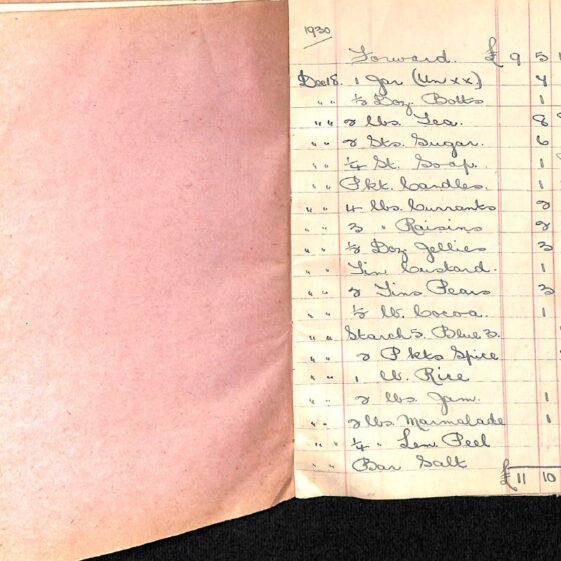 1930
Forward. £ 9 5
Dec 18. 1 Jar (Un xx) 4
" " ½ Doz Bolts 1
" " 2 lbs. Tea. 8
" " 2 Sts. Sugar. 6
" " ¼ St. Soap. 1
" " Pkt. Candles. 1
" " 4 lbs. Currants 2
" " 3 " Raisins 2
" " ½ Doz Jellies 3
" " Tin Custard. 1
" " 2 Tins Pears 3
" " ½ lb. Cocoa. 1
" " Starch 5. Blue 3.
" " 2 Pkts Spice
" " 1 lb. Rice
" " 2 lbs. Jam. 1
" " 2 lbs. Marmalade 1
" " ¼ " Lem. Peel
" " Bar Salt
£ 11 10